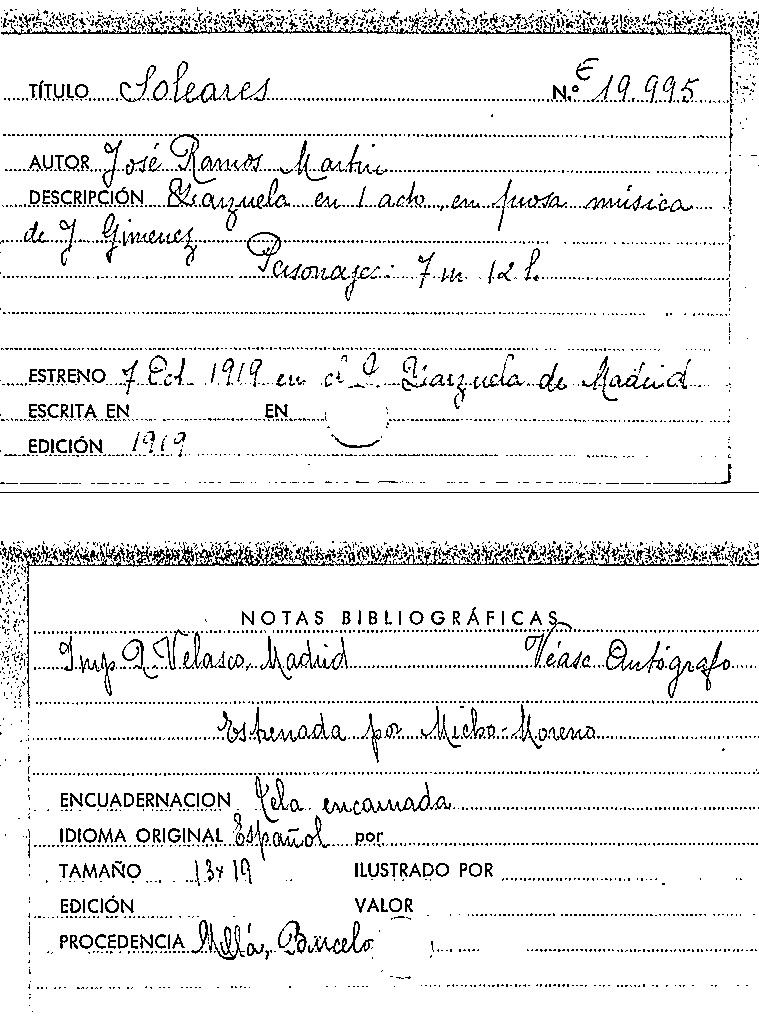 TÍTULO Soleares N.º E 19.995
AUTOR José Ramos Martin
DESCRIPCIÓN Zarzuela en 1 acto, en prosa música
de J Gimenez
Personajes: 7 m 12 h.
ESTRENO 7 Oct 1919 en el T. Zarzuela de Madrid
ESCRITA EN EN
EDICIÓN 1919
NOTAS BIBLIOGRÁFICAS
Imp. R. Velasco, Madrid Véase Autógrafo
Estrenada por Micho-Moreno
ENCUADERNACION Tela encarnada
IDIOMA ORIGINAL Español por
TAMAÑO 13x19 ILUSTRADO POR
EDICIÓN VALOR
PROCEDENCIA Millá, Barcelo